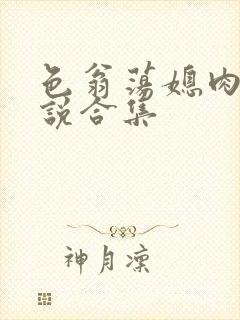 色翁荡媳肉
说合集
神月凛